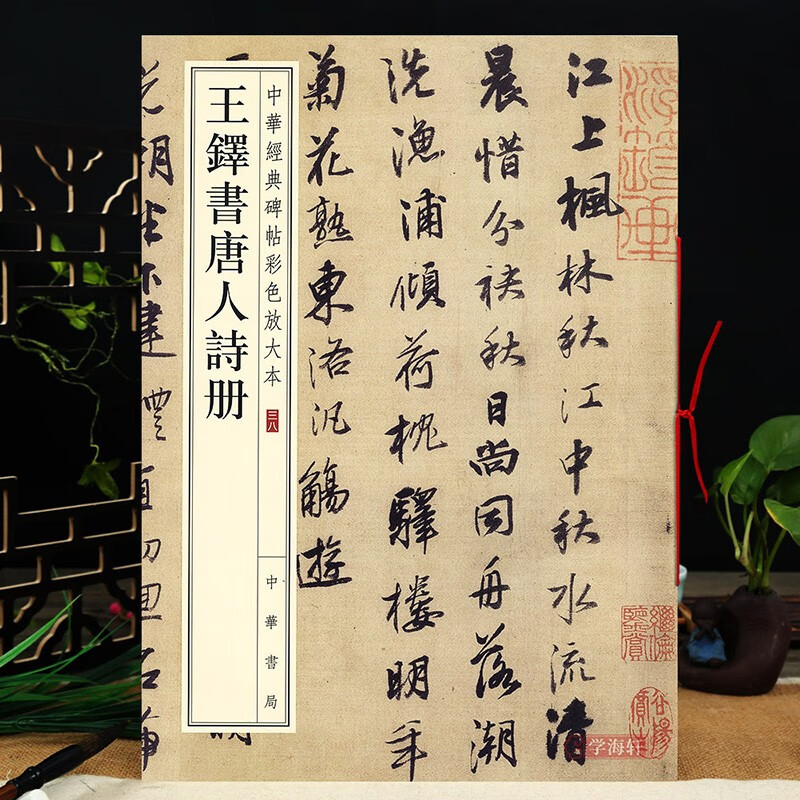 江上楓林秋江中秋水流清
晨惜分袂秋日尚同舟落潮
洗漁浦傾荷枕驛樓明年
菊花熟東洛汎觴遊
中華經典碑帖彩色放大本 三八
中華書局
王鐸書唐人詩册
学海轩